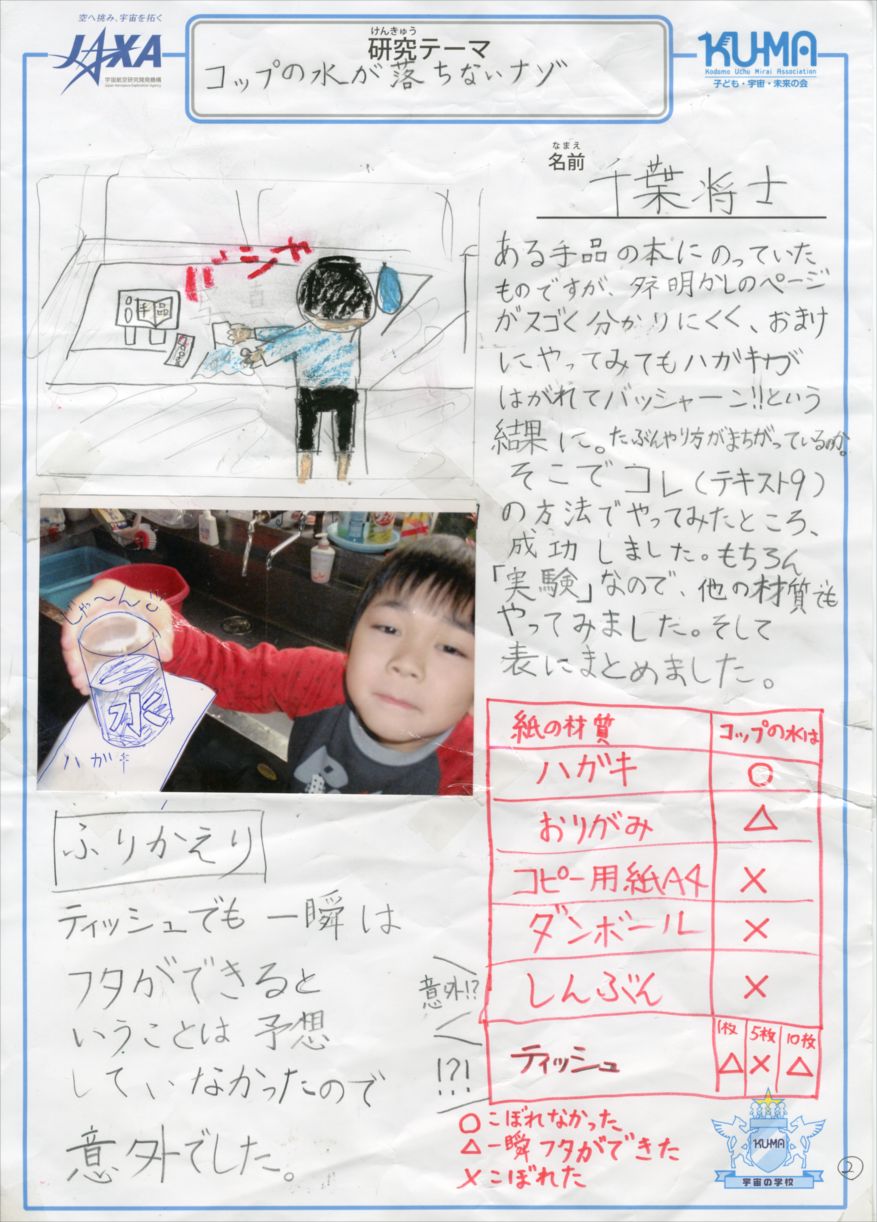 空へ挑み、宇宙を拓く
JAXA
宇宙航空研究開発機構
Japan Aerospace Exploration Agency
けんきゅう
研究テーマ
コップの水が落ちないナゾ
KU-MA
Kodomo Uchu Mirai Association
子ども・宇宙・未来の会
なまえ
名前
千葉将士
バシャ
手品
ある手品の本にのっていた
ものですが、タネ明かしのページ
がスゴく分かりにくく、おまけ
にやってみてもハガキが
はがれてバッシャーン!!という
結果に。たぶんやり方がまちがっているのか。
そこでコレ(テキスト9)
の方法でやってみたところ、
成功しました。もちろん
「実験」なので、他の材質でも
やってみました。そして
表にまとめました。
じゃ〜ん
水
ハガキ
紙の材質 コップの水は
ハガキ ○
おりがみ △
コピー用紙A4 ×
ダンボール ×
しんぶん ×
ティッシュ 1枚 △ 5枚 × 10枚 △
○こぼれなかった
△一瞬フタができた
×こぼれた
ふりかえり
ティッシュでも一瞬は
フタができると
いうことは予想
していなかったので
意外でした。
意外!?
!?!
KU-MA
宇宙の学校
2